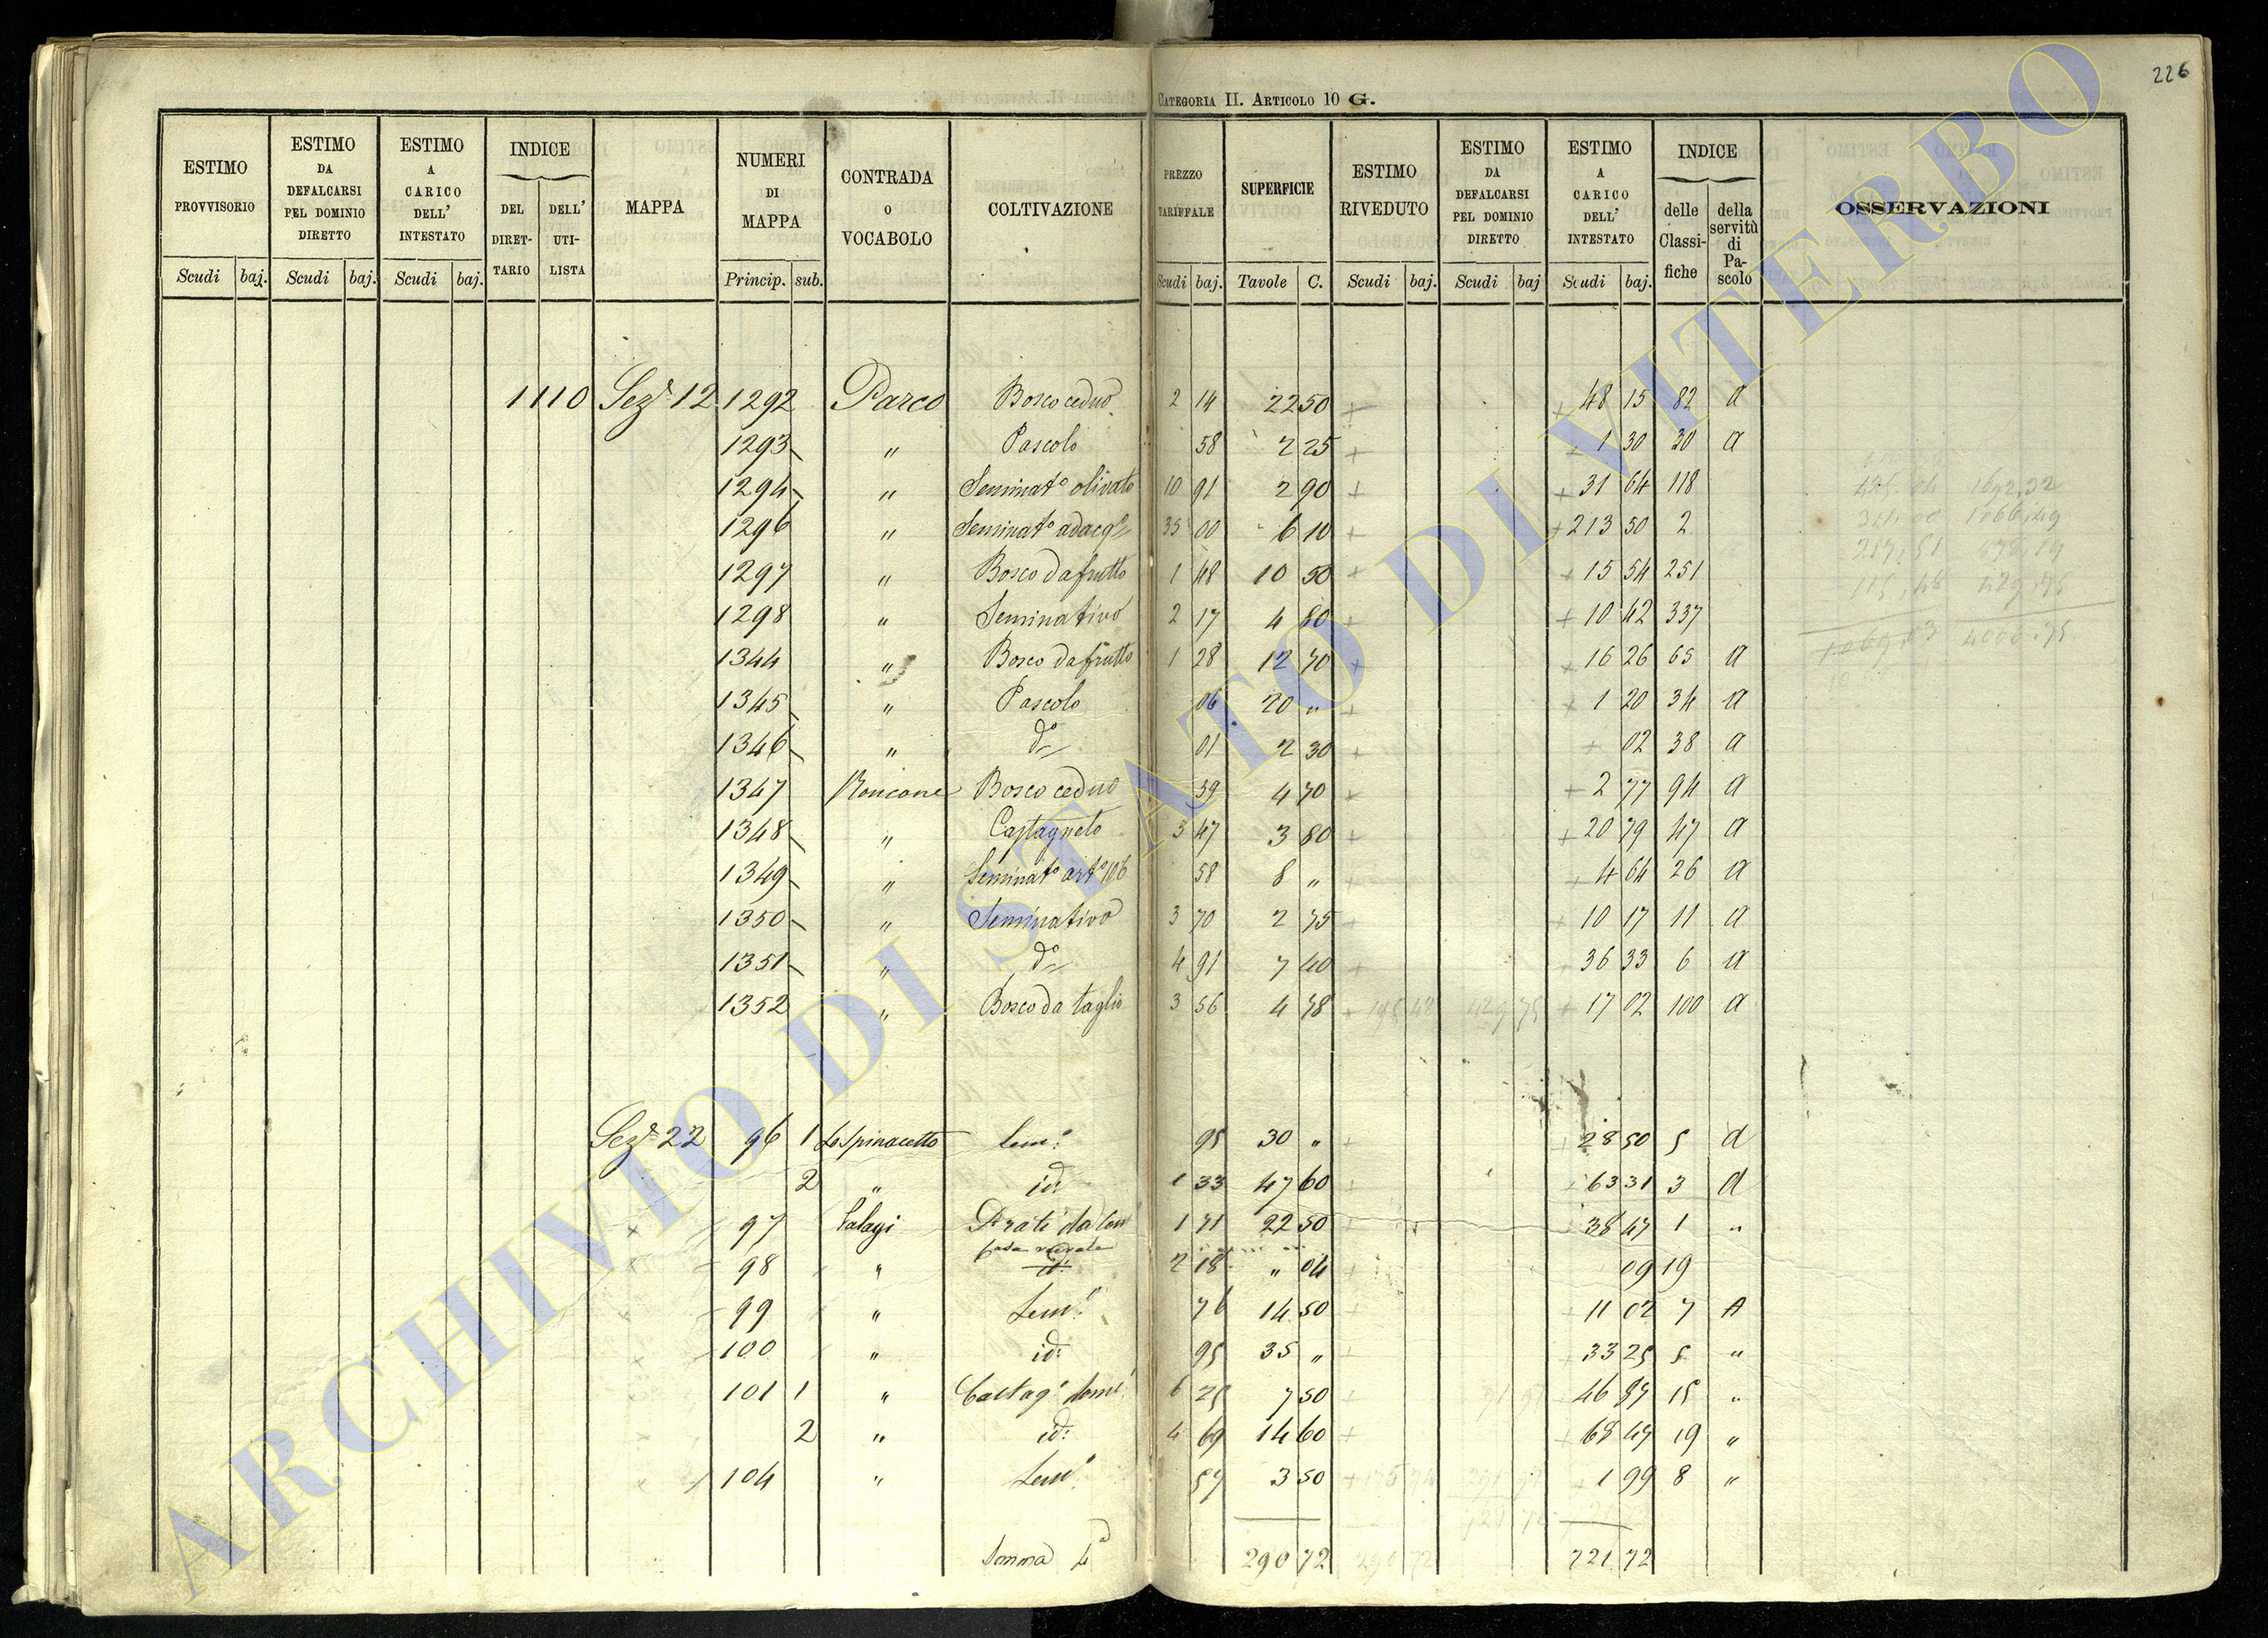 226
CATEGORIA II. ARTICOLO 10 G.
ESTIMO PROVVISORIO | ESTIMO DA DEFALCARSI PEL DOMINIO DIRETTO | ESTIMO A CARICO DELL' INTESTATO | INDICE DEL DIRET-TARIO | DELL' UTI-LISTA | MAPPA | NUMERI DI MAPPA | CONTRADA O VOCABOLO | COLTIVAZIONE | PREZZO TARIFFALE | SUPERFICIE | ESTIMO RIVEDUTO | ESTIMO DA DEFALCARSI PEL DOMINIO DIRETTO | ESTIMO A CARICO DELL' INTESTATO | INDICE delle Classi-fiche | della servitù di Pa-scolo | OSSERVAZIONI
Scudi | baj. | Scudi | baj. | Scudi | baj. | Princip. | sub. | Scudi | baj. | Tavole | C. | Scudi | baj. | Scudi | baj | Scudi | baj.
1110 Sez.e 12 1292 Parco Bosco ceduo 2 14 22 50 + + 48 15 82 a
1293 " Pascolo 58 2 25 + + 1 30 20 a
1294 " Seminat.o olivato 10 91 2 90 + + 31 64 118
1296 " Seminat.o adacq.o 35 00 6 10 + + 213 50 2
1297 " Bosco da frutto 1 48 10 50 + + 15 54 251
1298 " Seminativo 2 17 4 80 + + 10 42 337
1344 " Bosco da frutto 1 28 12 70 + + 16 26 65 a
1345 " Pascolo 06 20 " + + 1 20 34 a
1346 " d.o 01 2 30 + + 02 38 a
1347 Roncone Bosco ceduo 59 4 70 + + 2 77 94 a
1348 " Castagneto 5 47 3 80 + + 20 79 47 a
1349 " Seminat.o art.o 106 58 8 " + + 4 64 26 a
1350 " Seminativo 3 70 2 75 + + 10 17 11 a
1351 " d.o 4 91 7 40 + + 36 33 6 a
1352 " Bosco da taglio 3 56 4 78 + + 17 02 100 a
Sez.e 22 96 1 Lo Spinacetto Sem.o 95 30 " + + 28 50 5 d
2 " id: 1 33 47 60 + + 63 31 3 d
97 Palagi Prati 1 71 22 50 + 38 47 1 "
98 " Casa rurale 2 18 " 04 + 09 19
99 " Sem.o 76 14 50 + + 11 02 7 A
100 " id: 95 35 " + + 33 25 5 "
101 1 " Castag.o dome. 6 25 7 50 + 46 87 15 "
2 " id: 4 69 14 60 + + 68 47 19 "
104 " Sem.o 57 3 50 + + 1 99 8 "
Somma L.a 290 72 290 72 721 72
ARCHIVIO DI STATO DI VITERBO